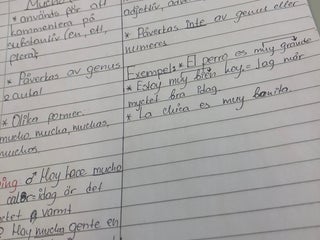 Mucho
* används för att
kommentera på
substantiv (en, ett,
plera)
* Påverkas av genus
& antal
* Olika former
mucho, mucha, muchas,
muchos
♂ Hoy hace mucho
calor = idag är det
varmt
Hoy mucha gente en
adjektiv,
* Påverkas inte av genus eller
numeros
Exempel: * El perro es muy grande
* Estoy muy bien hoy. = Jag mår
mycket bra idag
* La chica es muy bonita